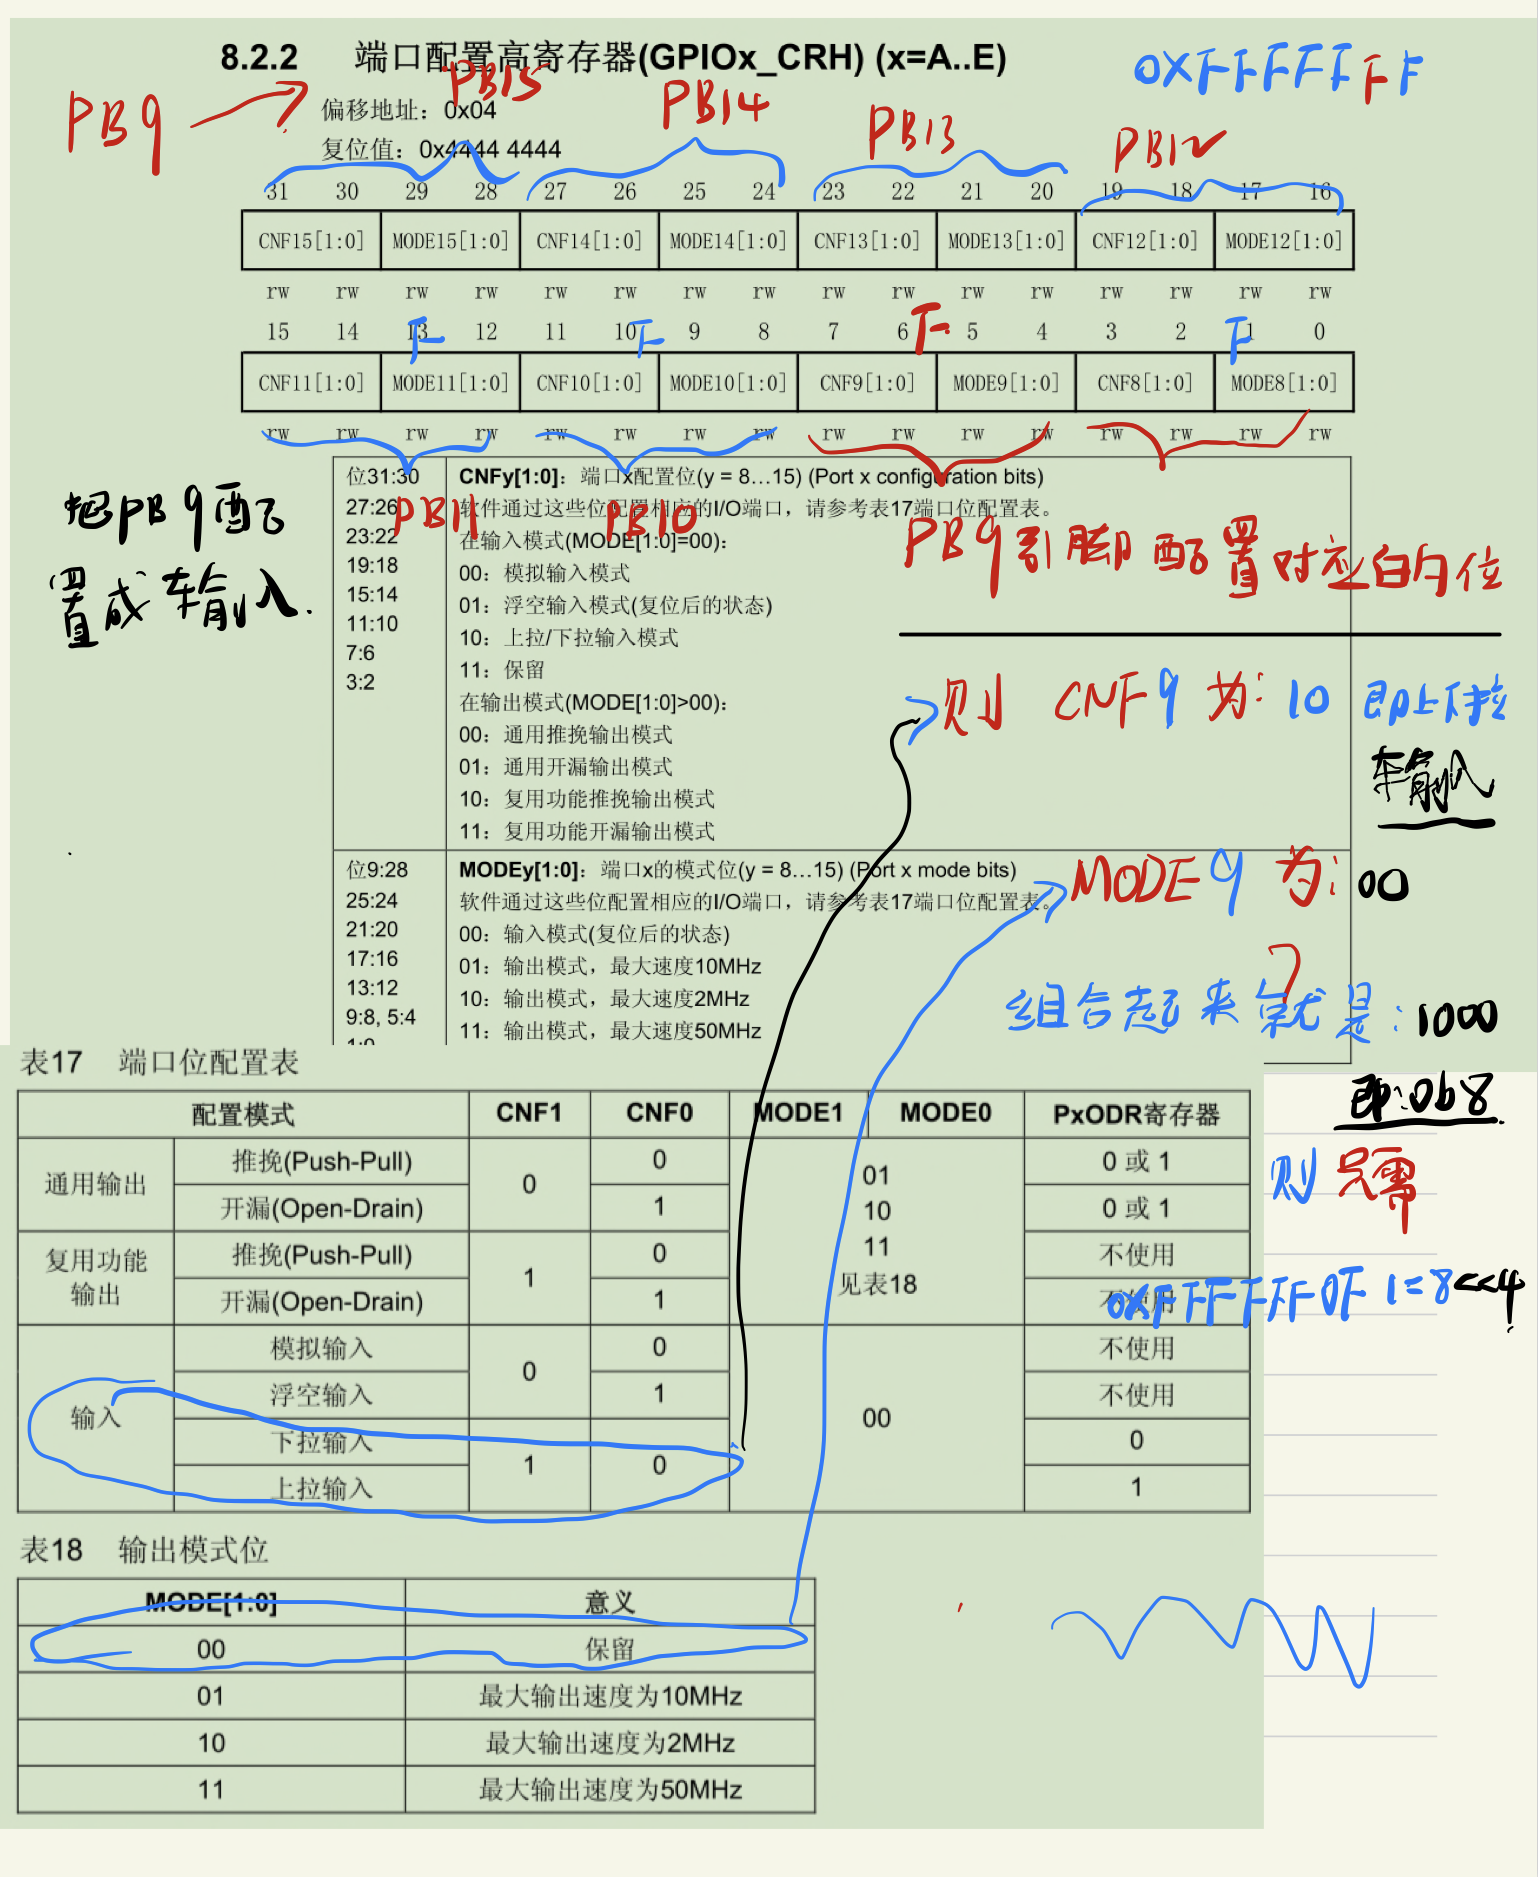 8.2.2 端口配置高寄存器(GPIOx_CRH) (x=A..E)
0XFFFFFFF
PB9
PB15
偏移地址：0x04
PB14
PB13
PB12
复位值：0x4444 4444
31 30 29 28 27 26 25 24 23 22 21 20 19 18 17 16
CNF15[1:0] MODE15[1:0] CNF14[1:0] MODE14[1:0] CNF13[1:0] MODE13[1:0] CNF12[1:0] MODE12[1:0]
rw rw rw rw rw rw rw rw rw rw rw rw rw rw rw rw
15 14 13 12 11 10 9 8 7 6 5 4 3 2 1 0
F F F F
CNF11[1:0] MODE11[1:0] CNF10[1:0] MODE10[1:0] CNF9[1:0] MODE9[1:0] CNF8[1:0] MODE8[1:0]
rw rw rw rw rw rw rw rw rw rw rw rw rw rw rw rw
PB11 PB10
PB9引脚配置对应的位
把PB9配
置成输入.
位31:30
27:26
23:22
19:18
15:14
11:10
7:6
3:2
CNFy[1:0]：端口x配置位(y = 8…15) (Port x configuration bits)
软件通过这些位配置相应的I/O端口，请参考表17端口位配置表。
在输入模式(MODE[1:0]=00)：
00：模拟输入模式
01：浮空输入模式(复位后的状态)
10：上拉/下拉输入模式
11：保留
在输出模式(MODE[1:0]>00)：
00：通用推挽输出模式
01：通用开漏输出模式
10：复用功能推挽输出模式
11：复用功能开漏输出模式
则 CNF9 为: 10 即上下拉
输入
位9:28
25:24
21:20
17:16
13:12
9:8, 5:4
1:0
MODEy[1:0]：端口x的模式位(y = 8…15) (Port x mode bits)
软件通过这些位配置相应的I/O端口，请参考表17端口位配置表。
00：输入模式(复位后的状态)
01：输出模式，最大速度10MHz
10：输出模式，最大速度2MHz
11：输出模式，最大速度50MHz
MODE9 为: 00
组合起来就是: 1000
即:0b8
则只需
0XFFFFFF0F 1=8<<4
表17 端口位配置表
配置模式 CNF1 CNF0 MODE1 MODE0 PxODR寄存器
通用输出 推挽(Push-Pull) 0 0 01 0 或 1
开漏(Open-Drain) 1 10 0 或 1
复用功能输出 推挽(Push-Pull) 1 0 11 不使用
开漏(Open-Drain) 1 见表18 不使用
输入 模拟输入 0 0 00 不使用
浮空输入 1 不使用
下拉输入 1 0 0
上拉输入 1
表18 输出模式位
MODE[1:0] 意义
00 保留
01 最大输出速度为10MHz
10 最大输出速度为2MHz
11 最大输出速度为50MHz